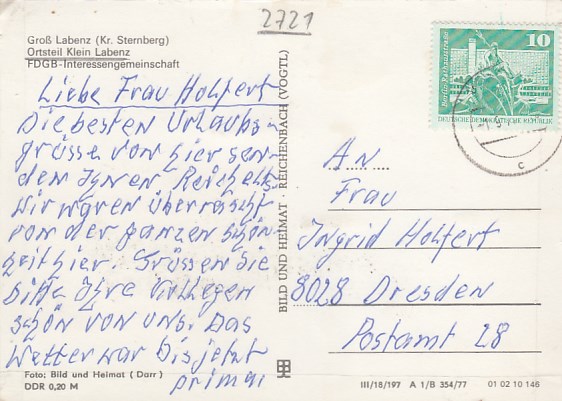 2721
Groß Labenz (Kr. Sternberg)
Ortsteil Klein Labenz
FDGB-Interessengemeinschaft
Liebe Frau Holfert
Die besten Urlaubs-
grüsse von hier sen-
den Ihnen Reichelts
Wir waren überrascht
von der ganzen Schön-
heit hier. Grüssen Sie
bitte Ihre Kollegen
schön von uns. Das
Wetter war bis jetzt
prima
Foto: Bild und Heimat (Darr)
DDR 0,20 M
BILD UND HEIMAT · REICHENBACH (VOGTL)
10
Berlin, Rathausstraße
DEUTSCHE DEMOKRATISCHE REPUBLIK
c
An
Frau
Ingrid Holfert
8028 Dresden
Postamt 28
III/18/197 A 1/B 354/77 01 02 10 146